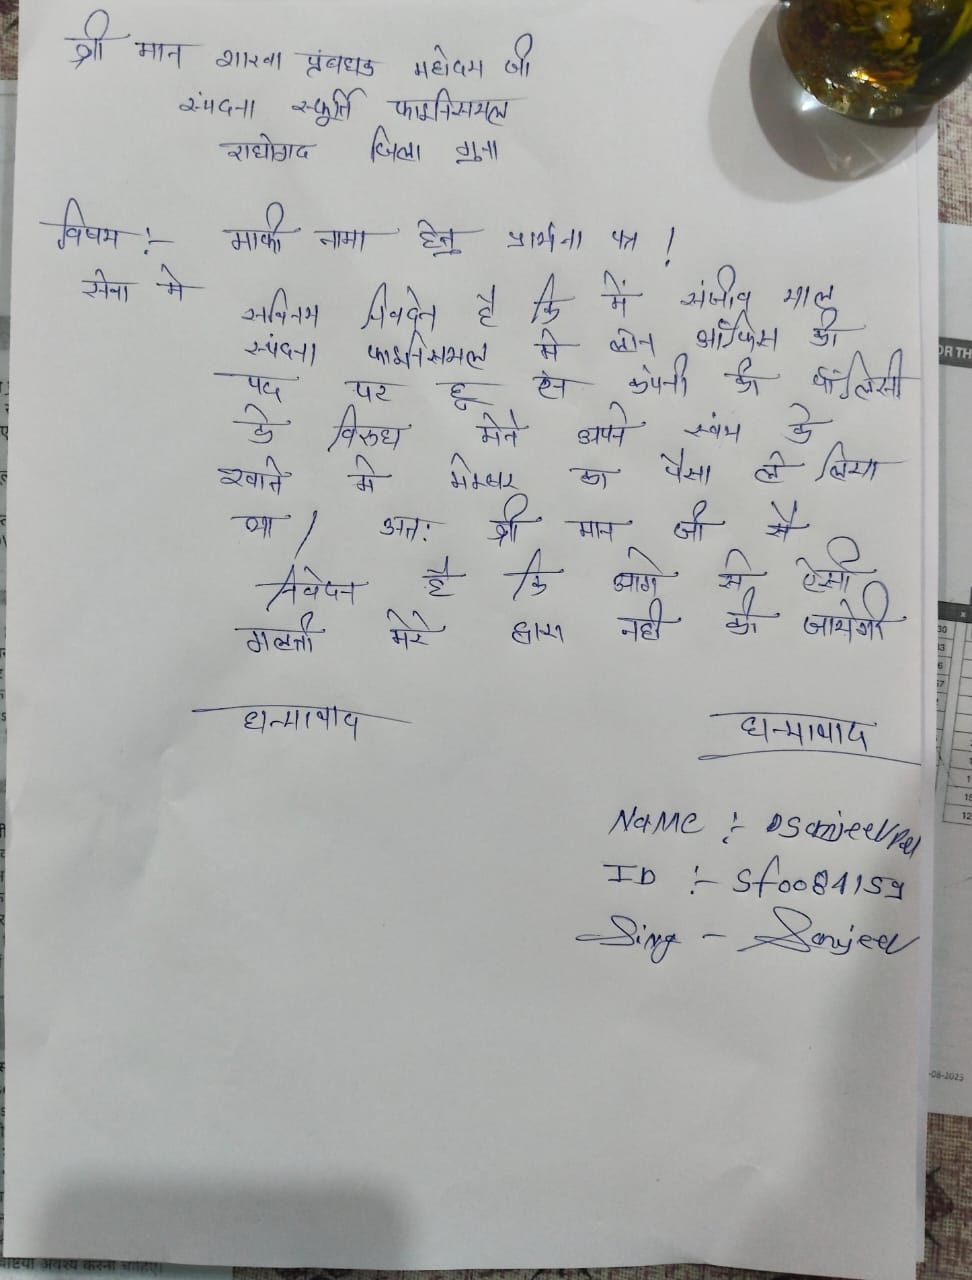 श्री मान शाखा प्रंबधक महोदय जी
स्पंदना स्फूर्ति फाइनेंसियल
राघोगढ जिला गुना
विषय :- माफी नामा हेतु प्रार्थना पत्र !
सेवा मे
सविनय निवेदन है कि में संजीव पाल
स्पंदना फाइनेंसियल मे लोन ऑफिस की
पद पर हू कंपनी की पॉलिसी
के विरुध मेने अपने स्वंय के
खाते मे मेम्बर का पैसा ले लिया
था / अत: श्री मान जी से
निवेदन है कि आगे से ऐसी
गलती मेरे द्वारा नही की जायेगी
धन्यावाद
धन्यावाद
NaMe :- Sanjeev Pal
ID :- Sf0084159
Sing - Sanjeev
OR TH
-08-2023
अवश्य करना चाहिए।